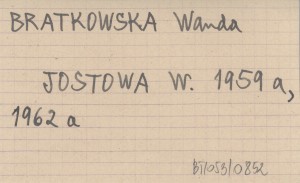 BRATKOWSKA Wanda
JOSTOWA W. 1959 a,
1962 a
BT/053/0852